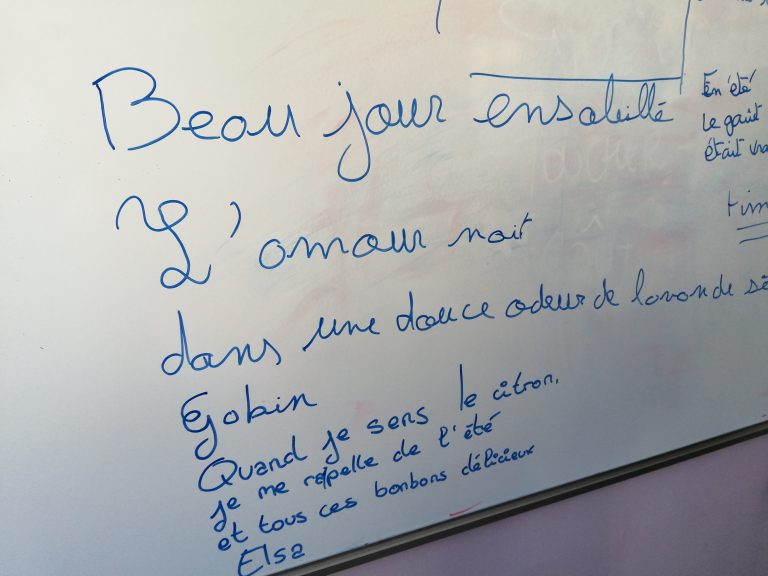 Beau jour ensoleillé
L'amour nait
dans une douce odeur de lavande
Gobin
Quand je sens le citron.
je me rapelle de l'été
et tous ces bonbons délicieux
Elsa
En été
le goût
était